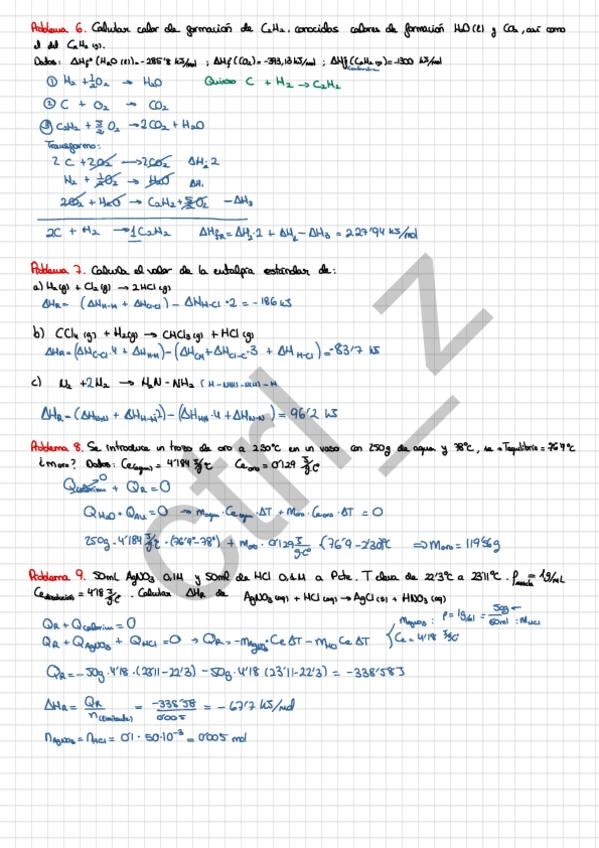 Problema 6. Calcular calor de formación de C2H2. conocidos calores de formación H2O(l) y CO2, así como
el del C2H2(g).
Datos: ΔHf°(H2O(l))=-285'8 kJ/mol ; ΔHf(CO2)=-393,13 kJ/mol ; ΔHf(C2H2(g))=-1300 kJ/mol
① H2 + 1/2 O2 → H2O Quiero C + H2 → C2H2
② C + O2 → CO2
③ C2H2 + 5/2 O2 → 2CO2 + H2O
Transformo:
2C + 2O2 → 2CO2 ΔH2·2
H2 + 1/2 O2 → H2O ΔH1
2CO2 + H2O → C2H2 + 5/2 O2 -ΔH3
2C + H2 → 1C2H2 ΔHfR = ΔH2·2 + ΔH1 - ΔH3 = 227'94 kJ/mol
Problema 7. Calcula el valor de la entalpía estándar de:
a) H2(g) + Cl2(g) → 2HCl(g)
ΔHR = (ΔHH-H + ΔHCl-Cl) - ΔHH-Cl·2 = -186 kJ
b) CCl4(g) + H2(g) → CHCl3(g) + HCl(g)
ΔHR = (ΔHC-Cl·4 + ΔHH-H) - (ΔHCH + ΔHCl-C·3 + ΔHH-Cl) = -83'7 kJ
c) N2 + 2H2 → H2N-NH2 (H-NH-NH-H
ΔHR = (ΔHN≡N + ΔHH-H·2) - (ΔHNH·4 + ΔHN-N) = 96'2 kJ
Problema 8. Se introduce un trozo de oro a 230°C en un vaso con 250g de agua y 78°C, se → Tequilibrio = 76'9°C
¿moro? Datos: Ce(agua) = 4'184 J/g°C Ce oro = 0'129 J/g°C
Qcalorim + QR = 0
QH2O + QAu = 0 → magua·Ceagua·ΔT + moro·Ceoro·ΔT = 0
250g·4'184 J/g°C·(76'9°-78°) + moro·0'129 J/g°C (76'9-230°C ⇒ moro = 119'36g
Problema 9. 50mL AgNO3 0,1M y 50ml de HCl 0,1M a Pcte. T eleva de 22'3°C a 23'11°C. ρmezcla = 1g/mL
Cedisolución = 4'18 J/g°C. Calcular ΔHR de AgNO3(aq) + HCl(aq) → AgCl(s) + HNO3(aq)
QR + Qcalorim = 0
QR + QAgNO3 + QHCl = 0 → QR = -mAgNO3·CeΔT - mHClCeΔT { mAgNO3: ρ=1g/ml = 50g/50ml : mHCl
Ce = 4'18 J/g°C
QR = -50g·4'18·(23'11-22'3) - 50g·4'18(23'11-22'3) = -338'58J
ΔHR = QR/n(limitante) = -338'58/0'005 = -67'7 kJ/mol
nAgNO3 = nHCl = 0'1·50·10⁻³ = 0'005 mol
Ctrl_Z